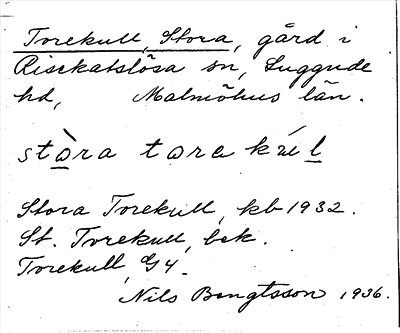 Torekull, Stora, gård i
Risekatslösa sn, Luggude
hd, Malmöhus län.
stò̱ra tarakúḻ
Stora Torekull, kb 1932.
St. Torekull, bek.
Torekull, G4.
Nils Bengtsson 1936.